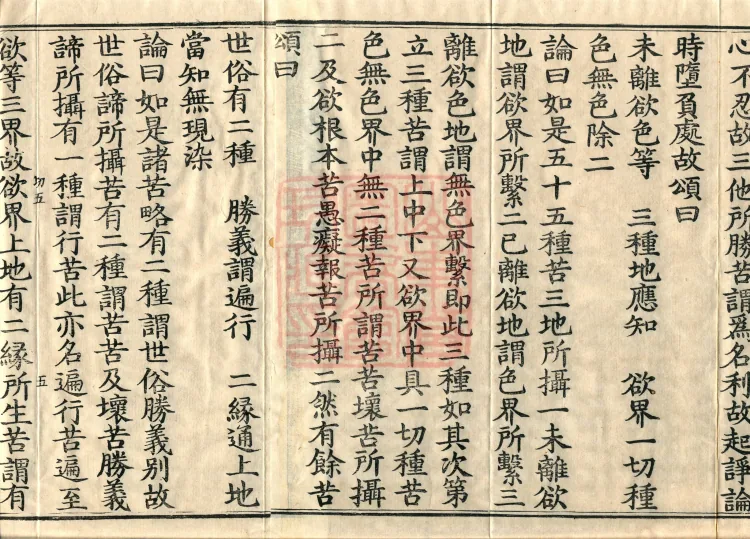 心不忍故三他所勝苦謂爲名利故起諍論
時墮負處故頌曰
未離欲色等　三種地應知　欲界一切種
色無色除二
論曰如是五十五種苦三地所攝一未離欲
地謂欲界所繫二已離欲地謂色界所繫三
離欲色地謂無色界繫即此三種如其次第
立三種苦謂上中下又欲界中具一切種苦
色無色界中無二種苦所謂苦苦壞苦所攝
二及欲根本苦愚癡報苦所攝二然有餘苦
頌曰
世俗有二種　勝義謂遍行　二緣通上地
當知無現染
論曰如是諸苦略有二種謂世俗勝義別故
世俗諦所攝苦有二種謂苦苦及壞苦勝義
諦所攝有一種謂行苦此亦名遍行苦遍至
五
欲等三界故欲界上地有二緣所生苦謂有